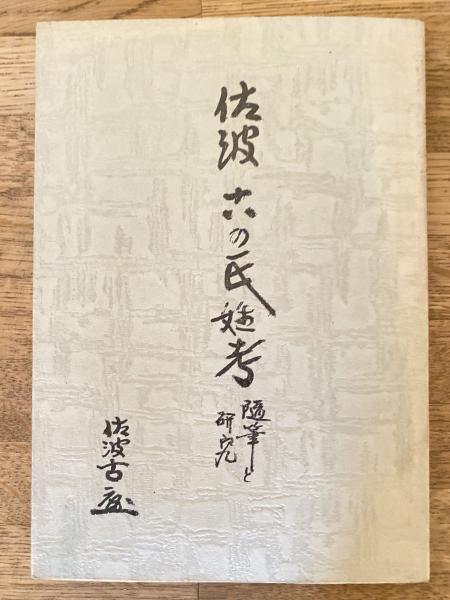 佐波 六の氏姓考
隨筆と
研究
佐波古